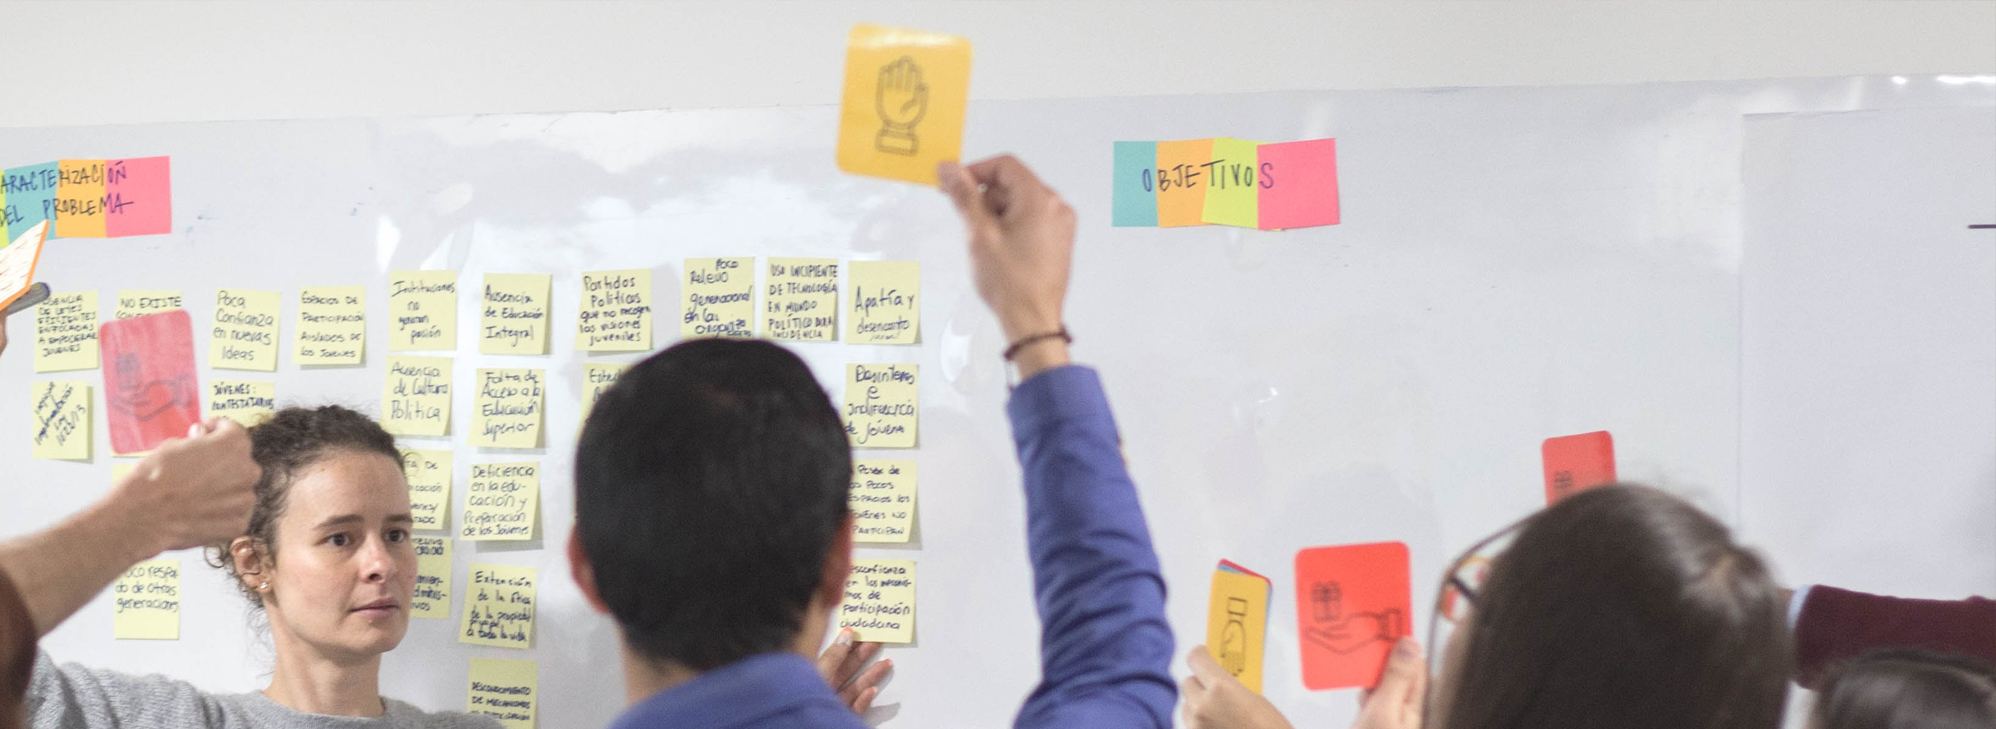 ARACTERIZACIÓN
DEL PROBLEMA
OBJETIVOS
DE ENTES
EFICIENTES
ENFOCADAS
A EMPODERAR
JÓVENES
NO EXISTE
Poca
Confianza
en nuevas
Ideas
ESPACIOS DE
PARTICIPACIÓN
AISLADOS DE
LOS JÓVENES
Instituciones
no
Ausencia
de Educación
Integral
Partidos
Políticos
que no recogen
las visiones
juveniles
Poco
Relevo
generacional
en las
USO INCIPIENTE
DE TECNOLOGÍA
EN MUNDO
POLÍTICO PARA
INCIDENCIA
Apatía y
desencanto
JÓVENES:
CONTESTATARIOS
Ausencia
de Cultura
Política
Falta de
Acceso a la
Educación
Superior
Desinterés
e
Indiferencia
de Jóvenes
TA DE
Deficiencia
en la edu-
cación y
Preparación
de los Jóvenes
POCOS
ESPACIOS LOS
JÓVENES NO
PARTICIPAN
Poco respal-
do de otras
generaciones
Extensión
de la ética
de la propiedad
privada
a toda la vida
esconfianza
en los mecanis-
mos de
participación
ciudadana
DESCONOCIMIENTO
DE MECANISMOS
PARTICIPACIÓN